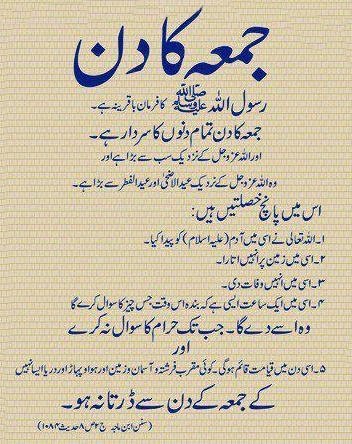 جمعہ کا دن
رسول اللہ ﷺ کا فرمان باقرینہ ہے۔
جمعہ کا دن تمام دنوں کا سردار ہے۔
اور اللہ عزوجل کے نزدیک سب سے بڑا ہے اور
وہ اللہ عزوجل کے نزدیک عیدالاضحیٰ اور عیدالفطر سے بڑا ہے۔
اس میں پانچ خصلتیں ہیں:
۱۔ اللہ تعالیٰ نے اسی میں آدم (علیہ السلام) کو پیدا کیا۔
۲۔ اسی میں زمین پر انہیں اتارا۔
۳۔ اسی میں انہیں وفات دی۔
۴۔ اسی میں ایک ساعت ایسی ہے کہ بندہ اس وقت جس چیز کا سوال کرے گا
وہ اسے دے گا۔ جب تک حرام کا سوال نہ کرے
اور
۵۔ اسی دن میں قیامت قائم ہوگی۔ کوئی مقرب فرشتہ و آسمان و زمین اور ہوا و پہاڑ اور دریا ایسا نہیں
کے جمعہ کے دن سے ڈرتا نہ ہو۔
(سنن ابن ماجہ ج ۲ ص ۸ حدیث ۱۰۸۴)